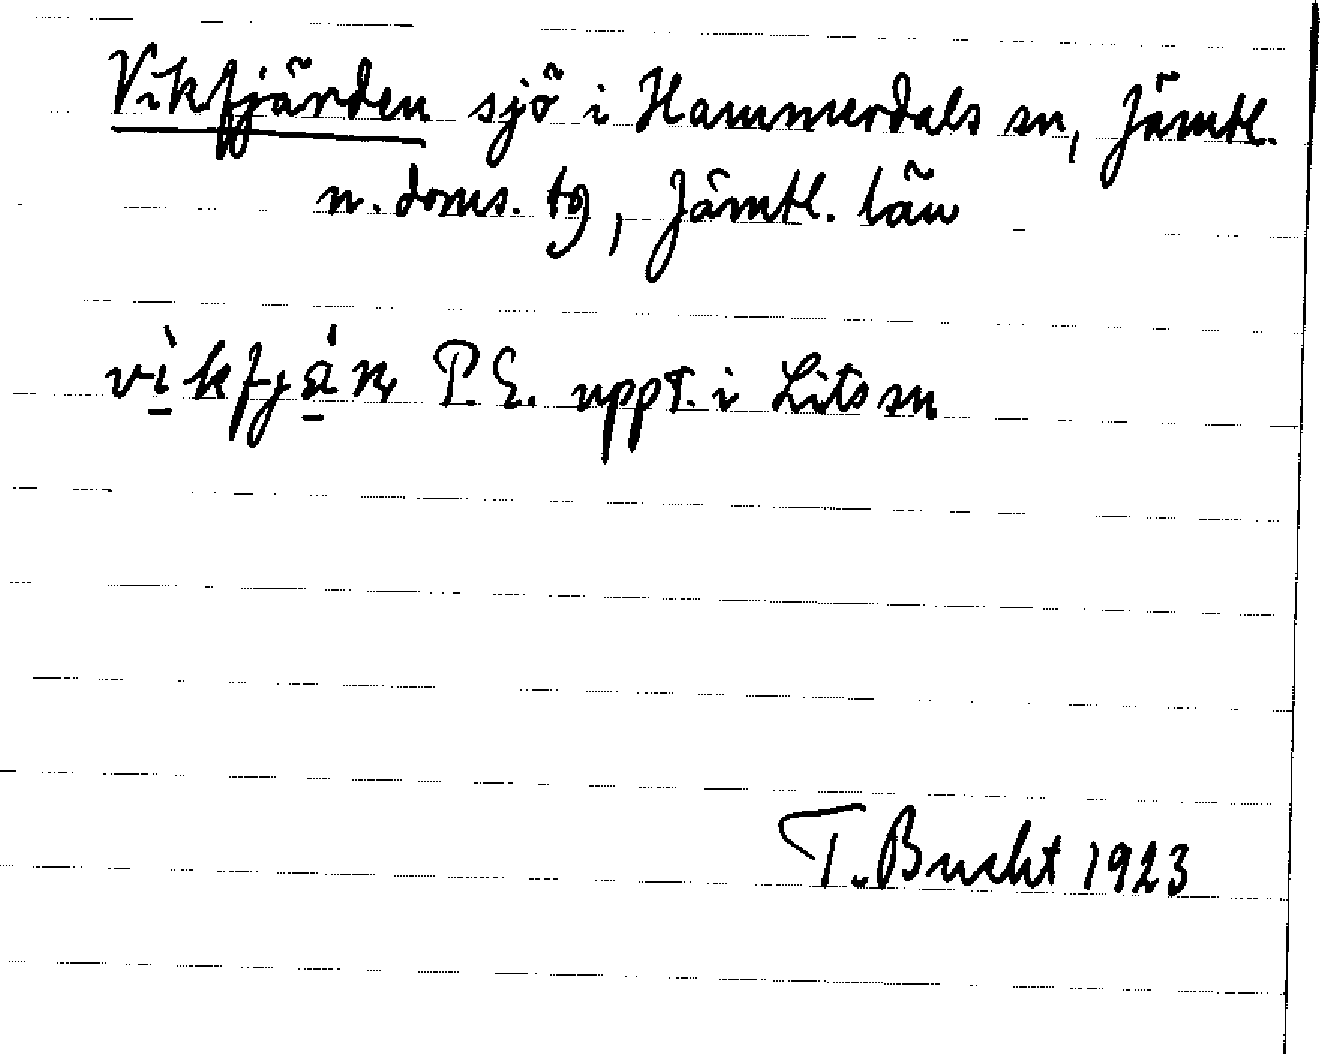 Vikfjärden sjö i Hammerdals sn, Jämtl.
n. doms. tg, Jämtl. län
P.E. uppt. i Lits sn
T. Bucht 1923